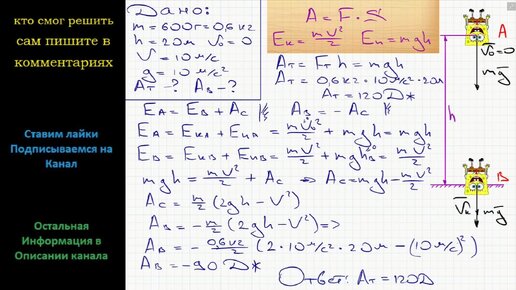 кто смог решить
сам пишите в
комментариях
Ставим лайки
Подписываемся на
Канал
Остальная
Информация в
Описании канала
Дано:
m=600г=0,6кг
h=20м V₀=0
V=10м/с
g=10м/с²
Aт-? Aв-?
A=F·S
Eк=mV²/2 Eп=mgh
Aт=Fт h=mgh
Aт=0,6кг·10м/с²·20м
Aт=120Дж
EA=EB+Ac Aв=-Ac
EA=EкA+EпA=mV₀²/2+mgh=mgh
EB=EкB+EпB=mV²/2+mgh₀=mV²/2
mgh=mV²/2+Ac => Ac=mgh-mV²/2
Ac=m/2(2gh-V²)
Aв=-m/2(2gh-V²)=>
Aв=-0,6кг/2(2·10м/с²·20м-(10м/с)²)
Aв=-90Дж
Ответ: Aт=120Д
A
V₀=0
mg
h
B
Vк mg